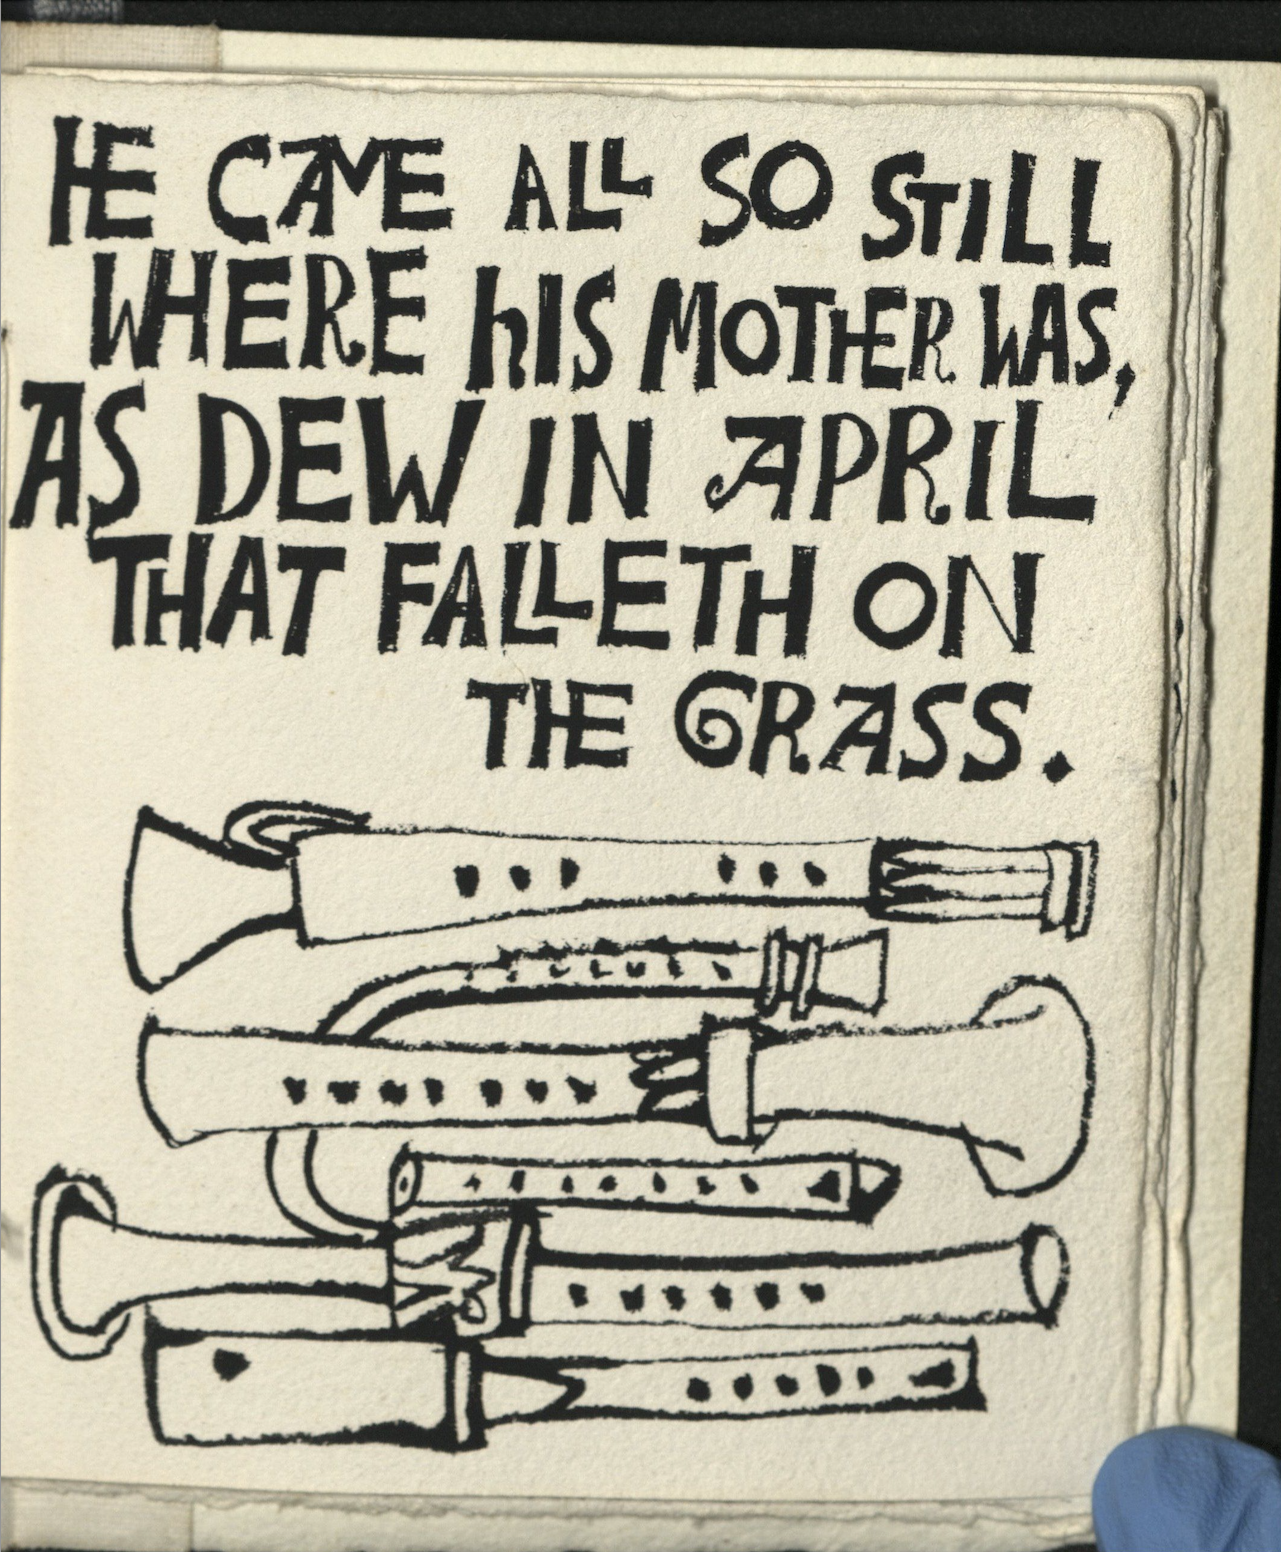 HE CAME ALL SO STILL
WHERE hIS MOTHER WAS,
AS DEW IN APRIL
THAT FALLETH ON
THE GRASS.